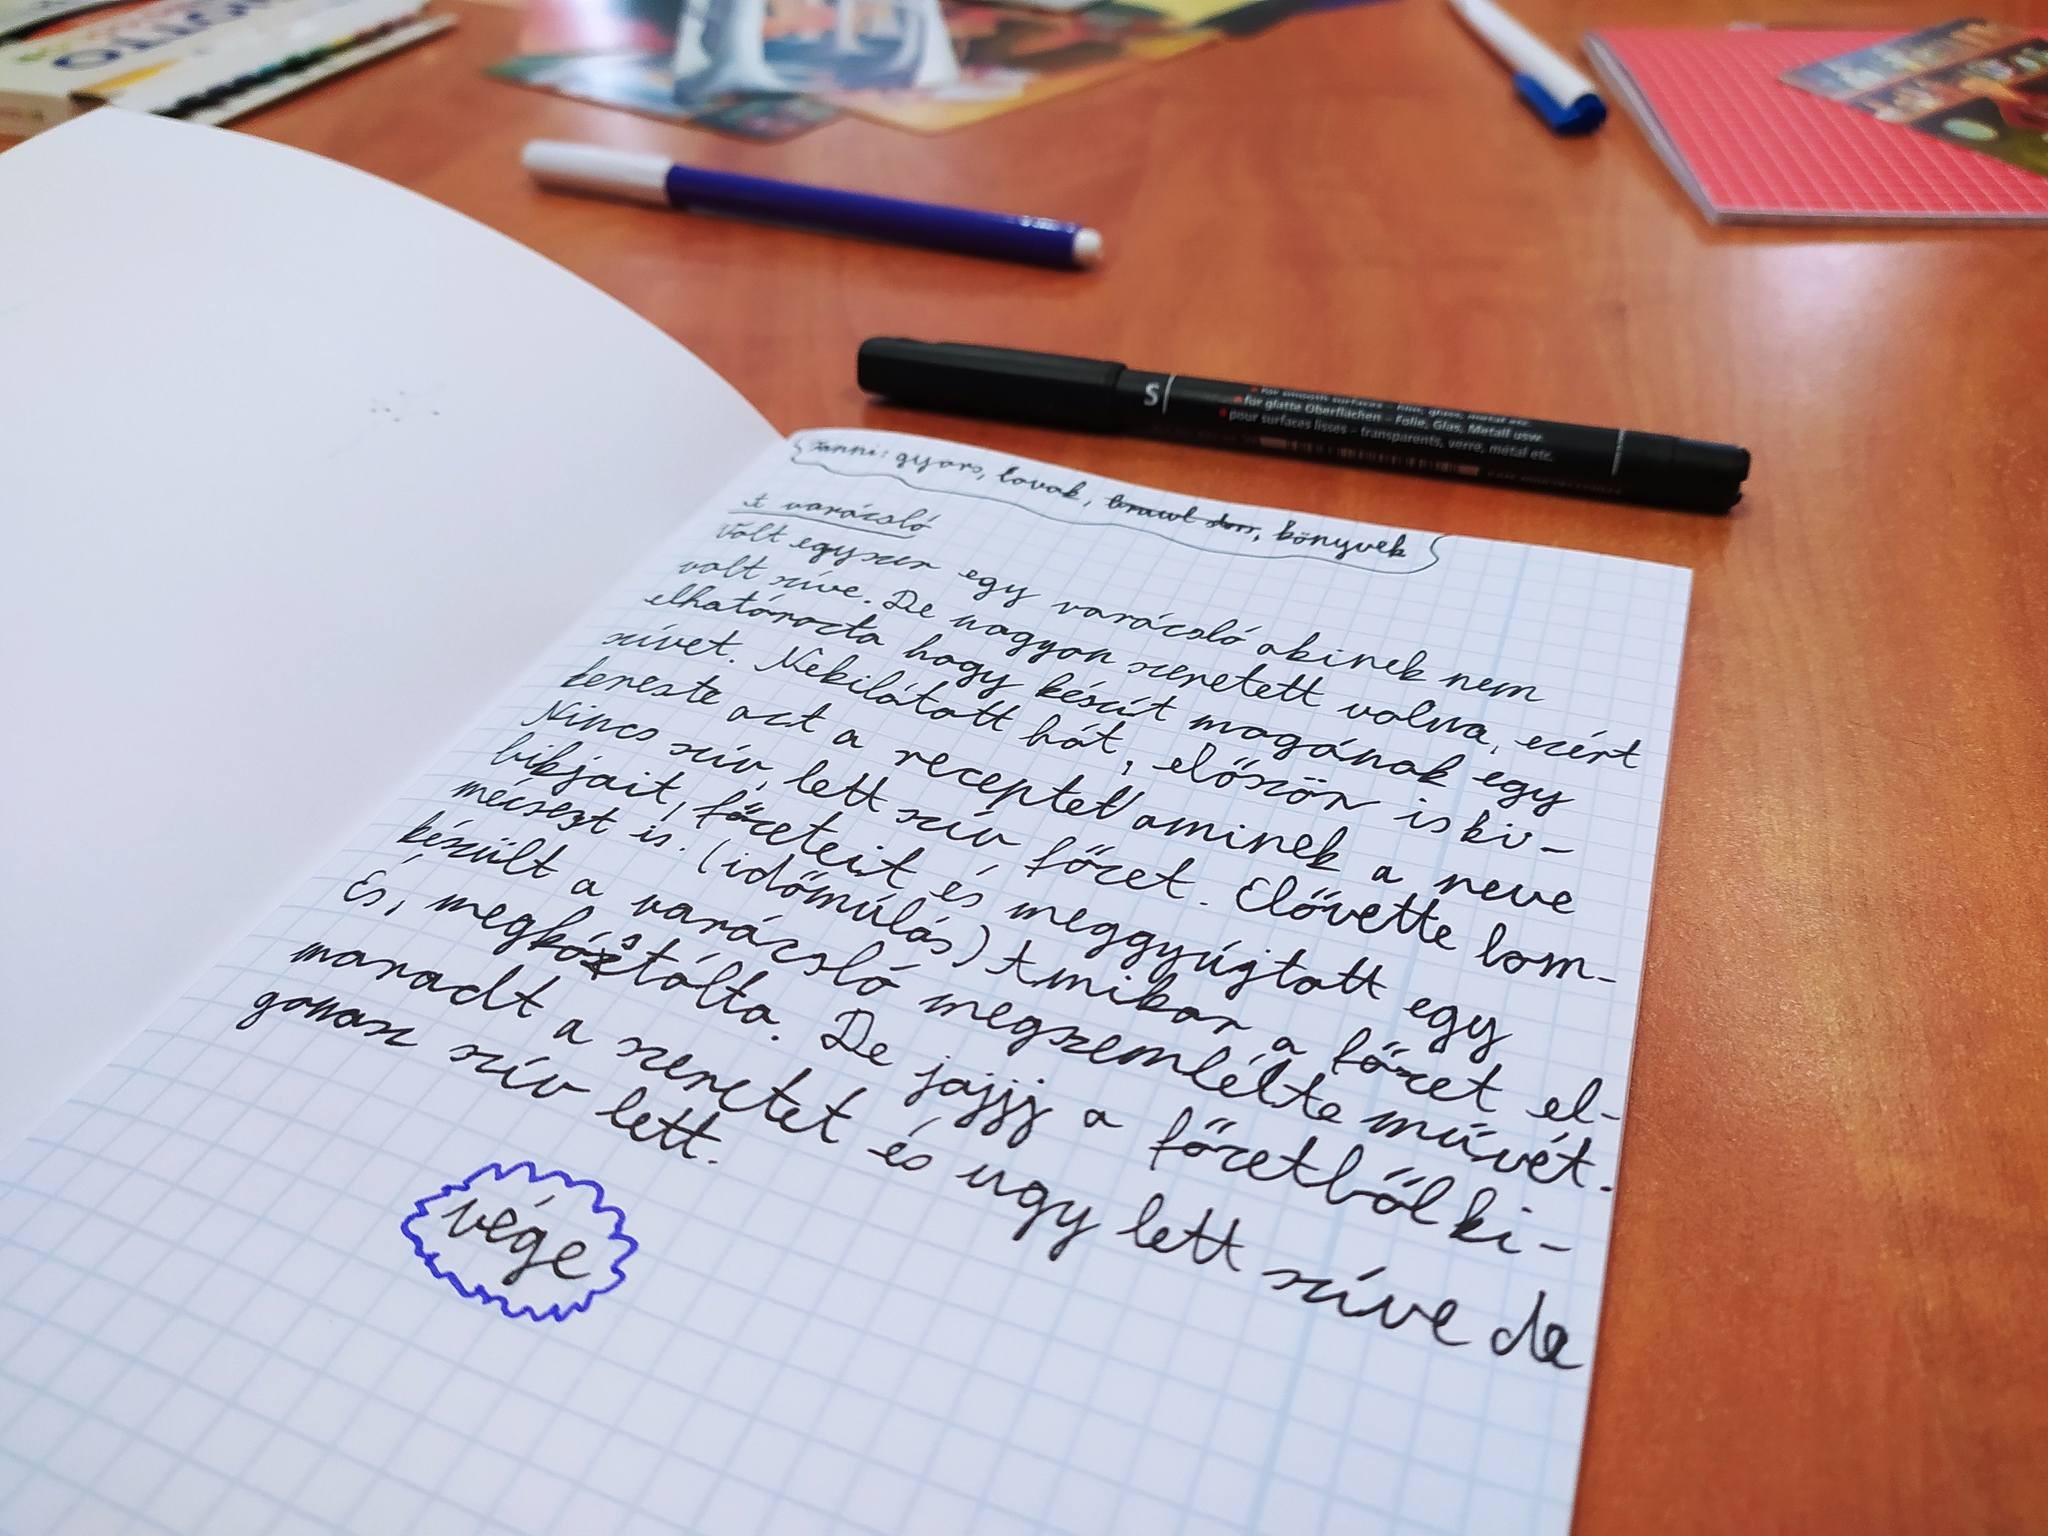 OTTO
S
for smooth surfaces – Folie, glass, metal etc.
für glatte Oberflächen – Folie, Glas, Metall usw.
pour surfaces lisses – transparents, verre, métal etc.
Janni: gyors, lovak, könyvek
A varázsló
Volt egyszer egy varázsló akinek nem
volt szíve. De nagyon szeretett volna, ezért
elhatározta hogy készít magának egy
szívet. Nekilátott hát, először is ki-
kereste azt a receptet aminek a neve
Nincs szív, lett szív főzet. Elővette lom-
bikjait, főzeteit és meggyújtott egy
mécsezt is. (időmúlás) Amikor a főzet el-
készült a varázsló megszemlélte művét.
És, megkóstólta. De jajjj a főzetből ki-
maradt a szeretet és ugy lett szíve de
gonosz szív lett.
vége